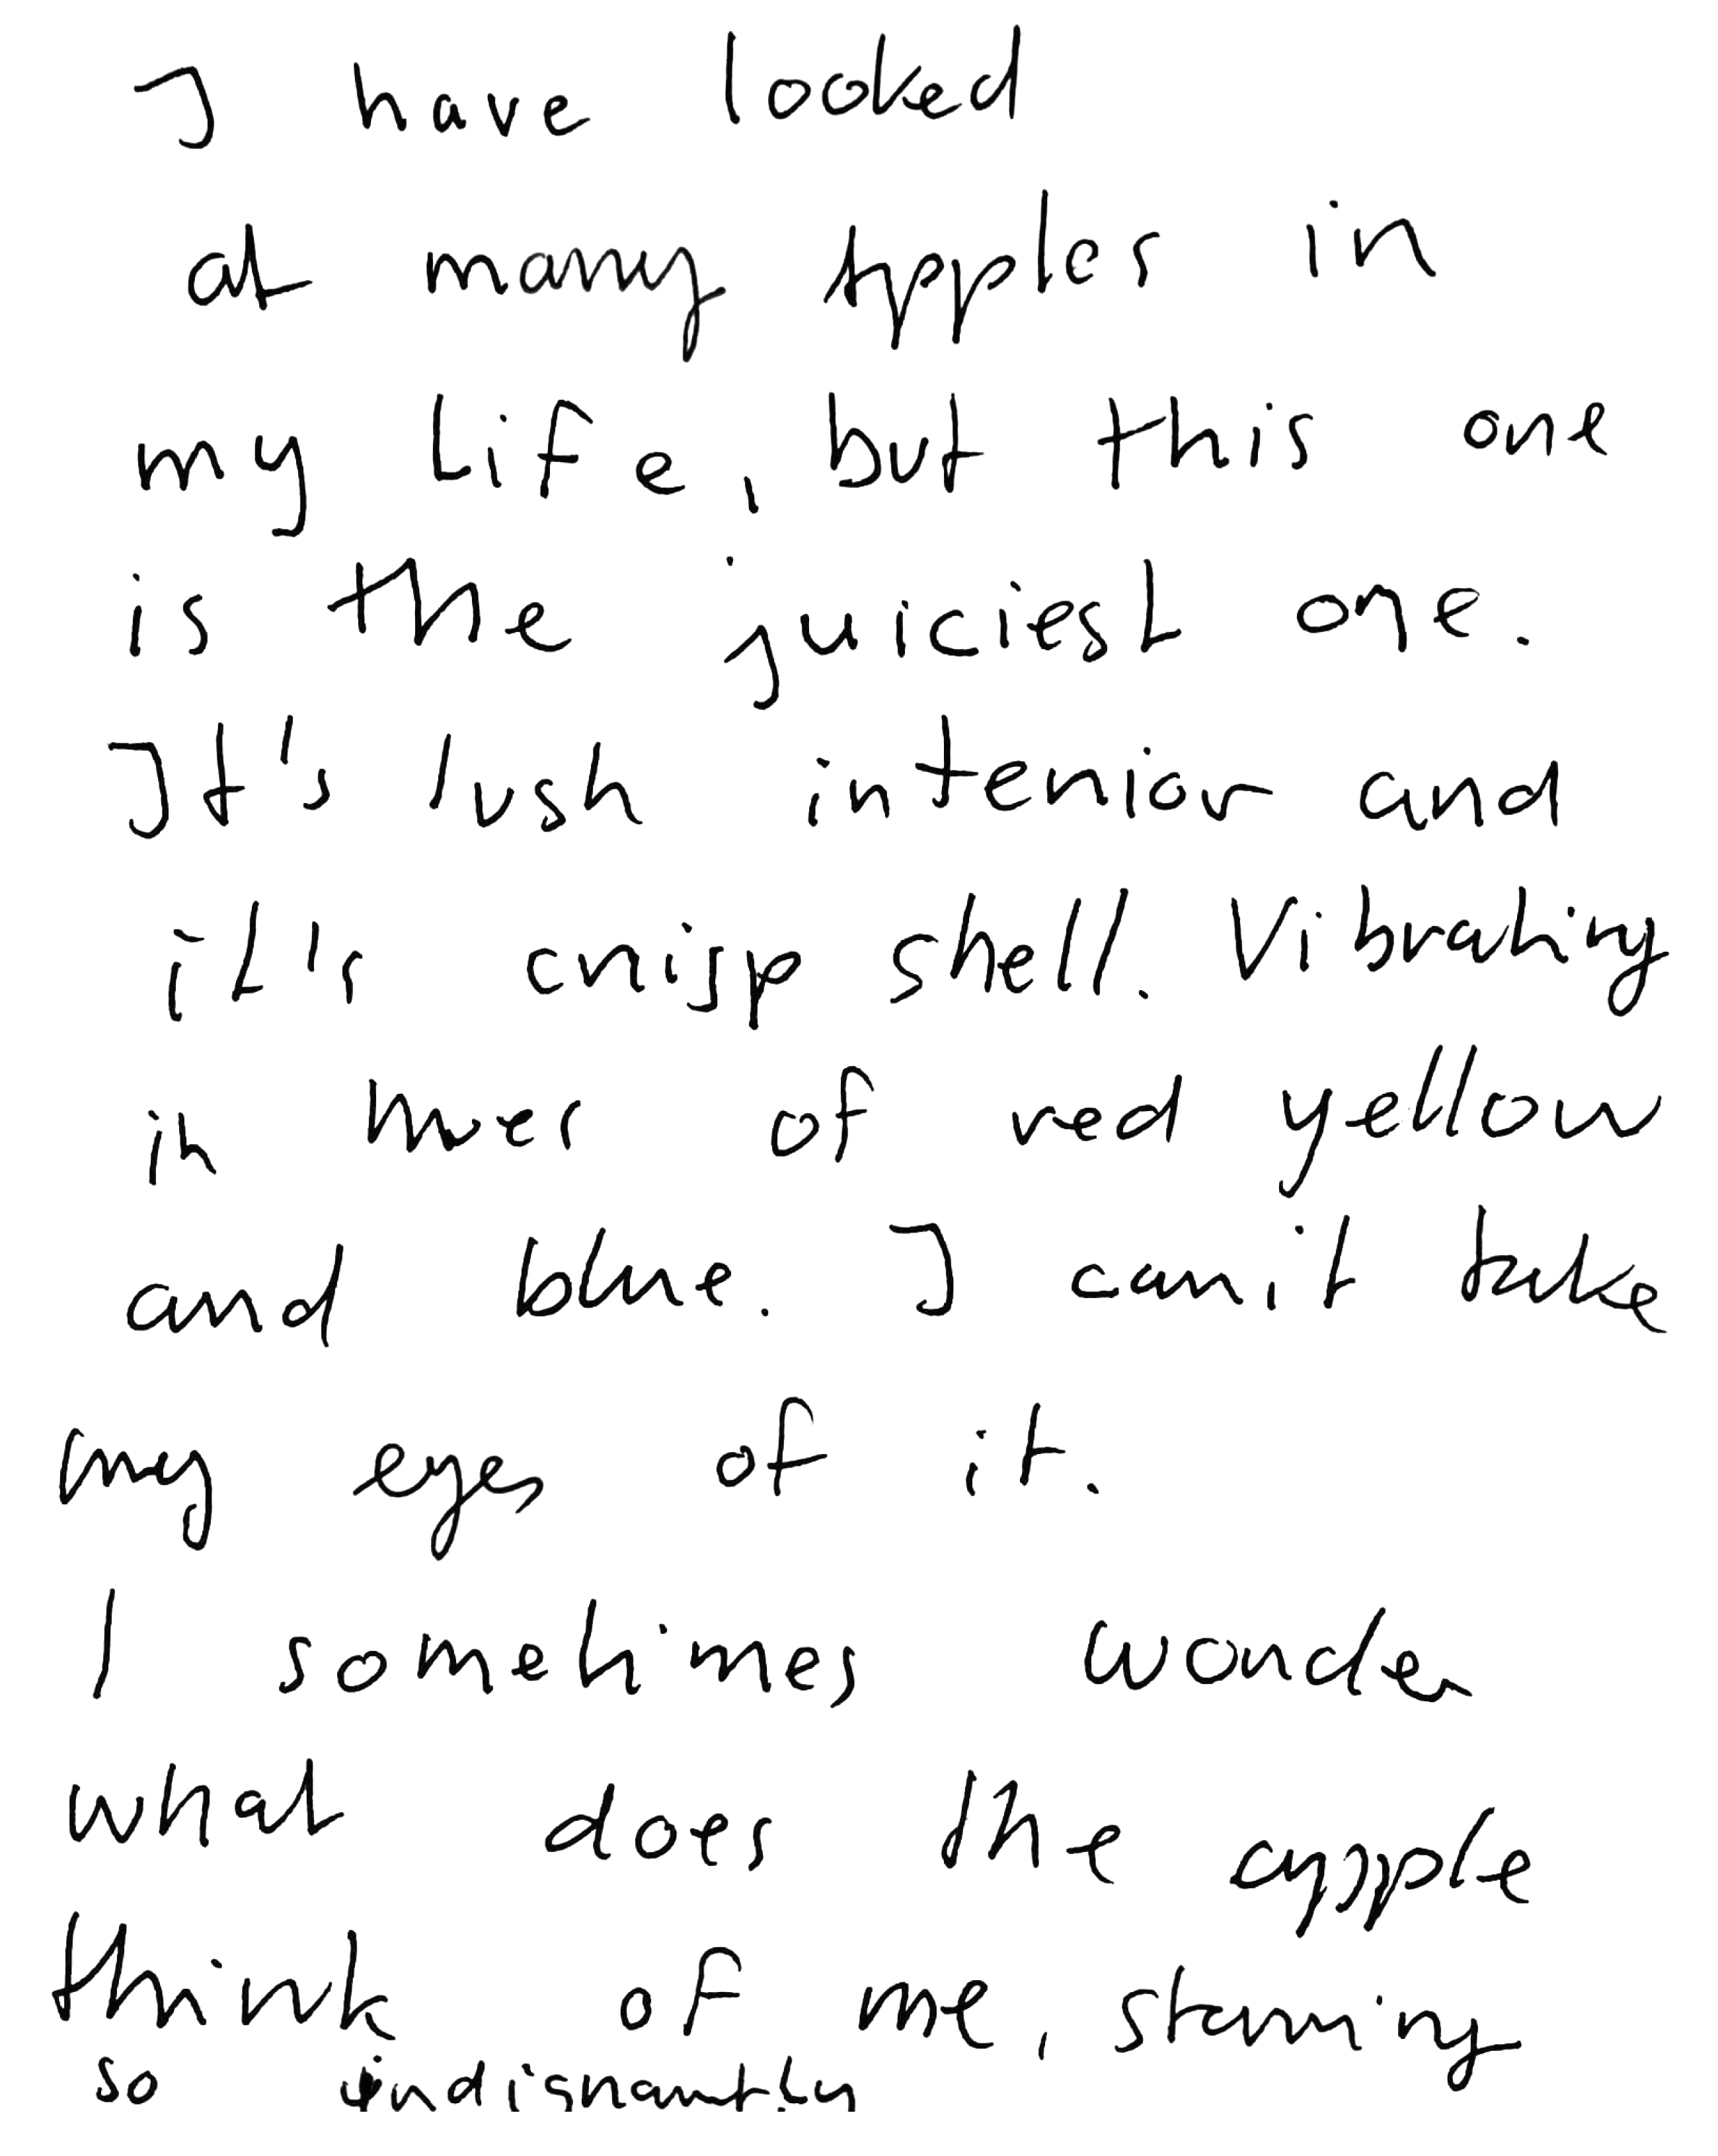 I have looked
at many apples in
my life, but this one
is the juiciest one.
It's lush interior and
it's crisp shell. Vibrating
in hues of red yellow
and blue. I can't take
my eyes of it.
I sometimes wonder
what does the apple
think of me, staring
so indignantly